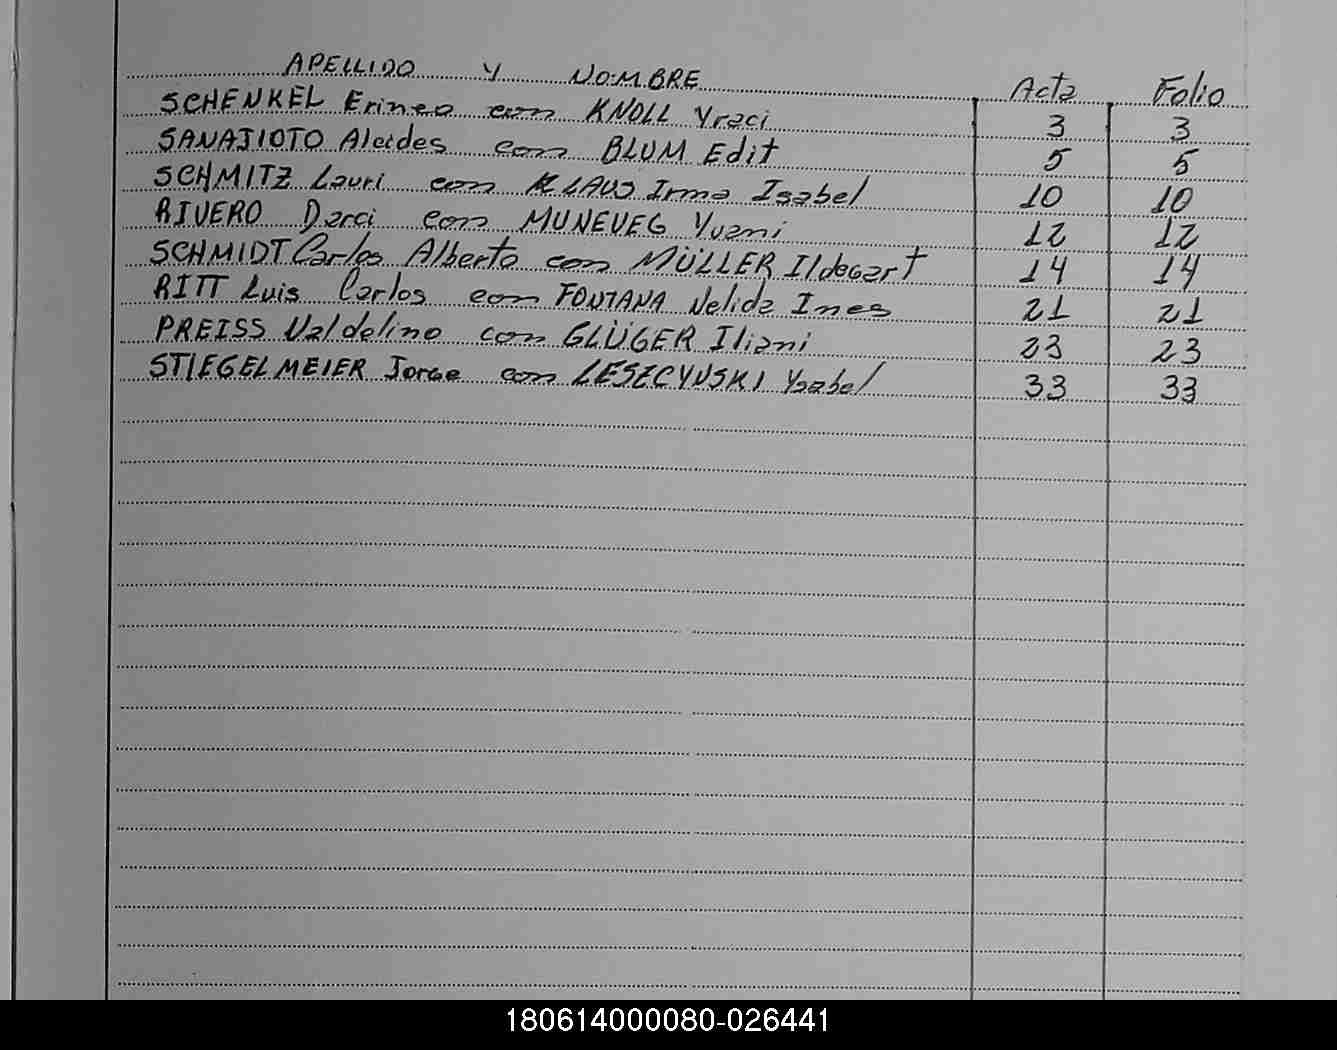 APELLIDO Y NOMBRE Acta Folio
SCHENKEL Erineo con KNOLL Yraci 3 3
SANAJIOTO Alcides con BLUM Edit 5 5
SCHMITZ Lauri con KLAUS Irma Isabel 10 10
RIVERO Darci con MUNEVEG Yvani 12 12
SCHMIDT Carlos Alberto con MÜLLER Ildegart 14 14
RITT Luis Carlos con FONTANA Nelida Ines 21 21
PREISS Valdelino con GLÜGER Iliani 23 23
STIEGELMEIER Jorge con LESZCYNSKI Ysabel 33 33
180614000080-026441